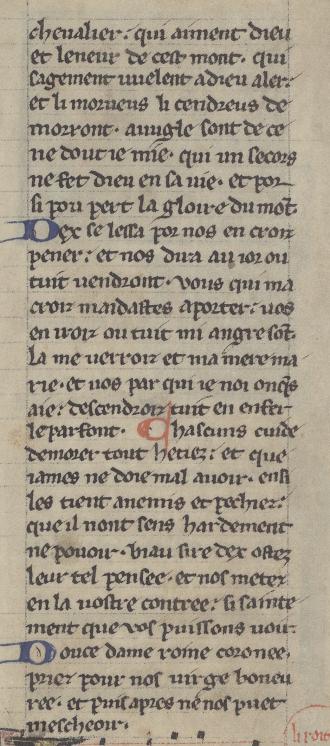 chevalier. qui aiment dieu
et leneur de cest mont. qui
sagement vuelent a dieu aler.
et li morveus li cendreus de
morront. avugle sont de ce
ne dout ie mie. qui un secors
ne fet dieu en sa vie. et por
si pou pert la gloire du mont.
Dex se lessa por nos en croiz
pener. et nos dira au ior ou
tuit vendront. vous qui ma
croiz maidastes a porter. vos
en iroiz ou tuit mi angre sont.
la me verroiz et ma mere ma
rie. et vos par qui ie noi onqs
aie. descendroiz tuit en enfer
le parfont. Chascuns cuide
demorer tout hetiez. et que
iames ne doie mal avoir. ensi
les tient anemis et pechiez.
que il nont sens hardement
ne pouoir. biau sire dex ostez
leur tel pensee. et nos metez
en la vostre contree. si sainte
ment que vos puissons veoir.
Douce dame roine coronee.
priez pour nos virge boneu
ree. et puis apres ne nos puet
mescheoir.